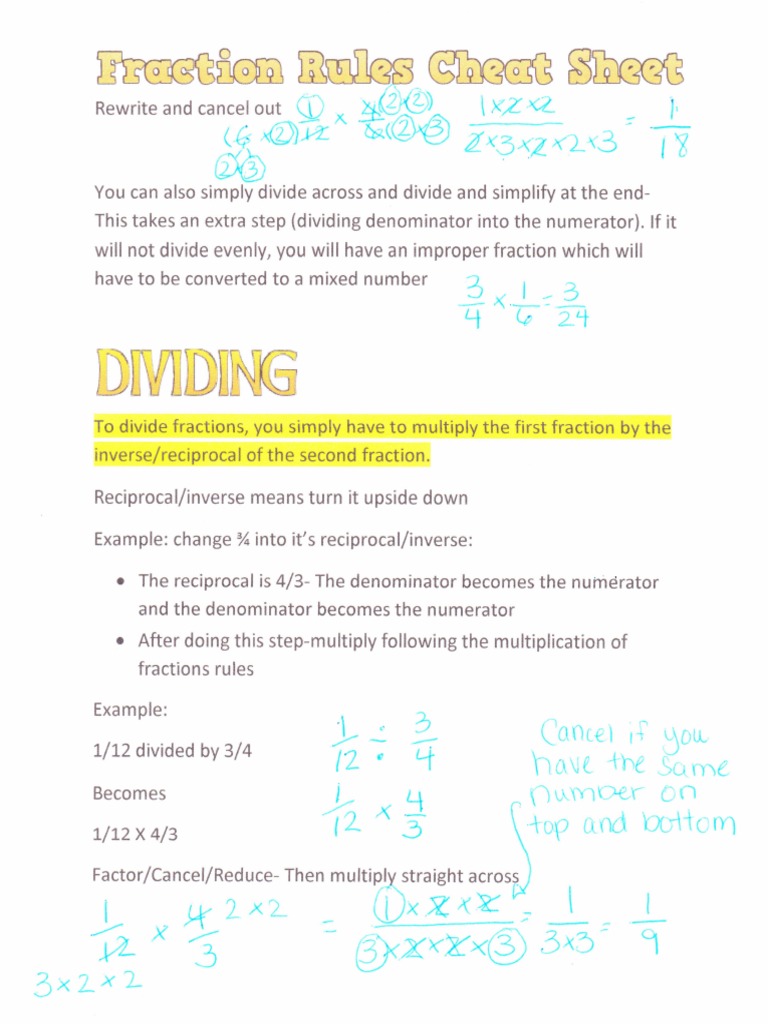 Fraction Rules Cheat Sheet
Rewrite and cancel out 1/12 × 4/6 (2×2) 1×2×2/2×3×2×2×3 = 1/18
(6 ×2) (2×3)
2×3
You can also simply divide across and divide and simplify at the end-
This takes an extra step (dividing denominator into the numerator). If it
will not divide evenly, you will have an improper fraction which will
have to be converted to a mixed number
3/4 × 1/6 = 3/24
DIVIDING
To divide fractions, you simply have to multiply the first fraction by the
inverse/reciprocal of the second fraction.
Reciprocal/inverse means turn it upside down
Example: change ¾ into it's reciprocal/inverse:
• The reciprocal is 4/3- The denominator becomes the numerator
and the denominator becomes the numerator
• After doing this step-multiply following the multiplication of
fractions rules
Example:
1/12 divided by 3/4
1/12 ÷ 3/4
Becomes
1/12 X 4/3
1/12 × 4/3
Cancel if you
have the same
number on
top and bottom
Factor/Cancel/Reduce- Then multiply straight across
1/12 × 4/3 2×2 = 1×2×2/3×2×2×3 = 1/3×3 = 1/9
3×2×2